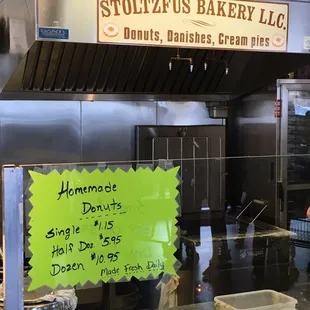 STOLTZFUS BAKERY LLC.
Donuts, Danishes, Cream pies
Homemade
Donuts
Single $1.15
Half Doz. $5.95
Dozen $10.95
Made Fresh Daily